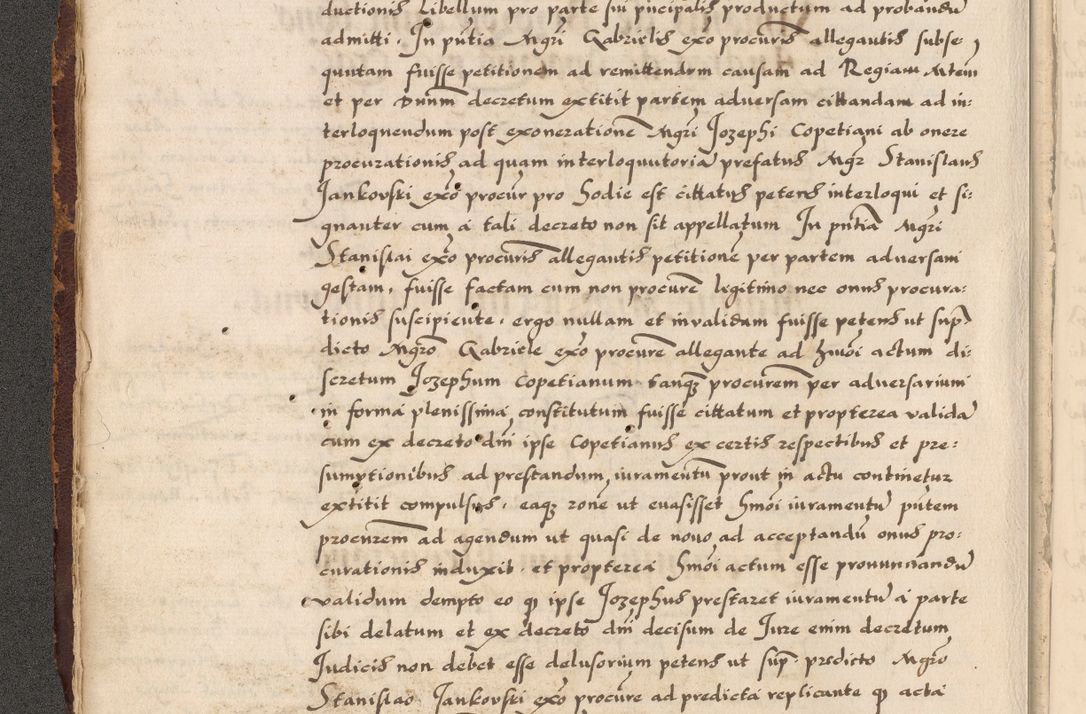 ductionis Libellum pro parte sui pncipalis productum ad probandu
admitti. In pntia Mgri Gabrielis exo procuris allegantis subse-
quutam fuisse petitionem ad remittendam causam ad Regiam Mtem
et per Dunm decretum extitit partem adversam cittandam ad in:
terloquendum post exoneratione Mgri Jozephi Copetiani ab onere
procurationis ad quam interloquutoria prefatus Mgr Stanislaus
Jankovski exo procur pro Hodie est cittatus petens interloqui et si:
gnanter cum a tali decreto non sit appellatum In pntia Mgri
Stanislai exo procuris allegantis petitione per partem adversam
gestam, fuisse factam cum non procure legitimo nec onus procura:
tionis suscipiente, ergo nullam et invalidam fuisse petens ut sup
dicto Mgro Gabriele exo procure allegante ad Hmoi actum di:
scretum Jozephum Copetianum tanq procurem per adversarium
in forma plenissima constitutum fuisse cittatum et propterea valida
cum ex decreto dni ipse Copetianus ex certis respectibus et pre:
sumptionibus ad prestandum iuramentu prout in actu continetur
extitit compulsus, eaq rone ut evasisset Hmoi iuramentu putem
procurem ad agendum ut quasi de novo ad acceptandu onus pro:
curationis induxit, et propterea Hmoi actum esse pronunciandu
validum dempto eo q ipse Jozephus prestaret iuramentu a parte
sibi delatum et ex decreto dni decisum de Jure enim decretum
Judicis non debet esse delusorium petens ut sup. predicto Mgro
Stanislao Jankovski exo procure ad predicta replicante q acta